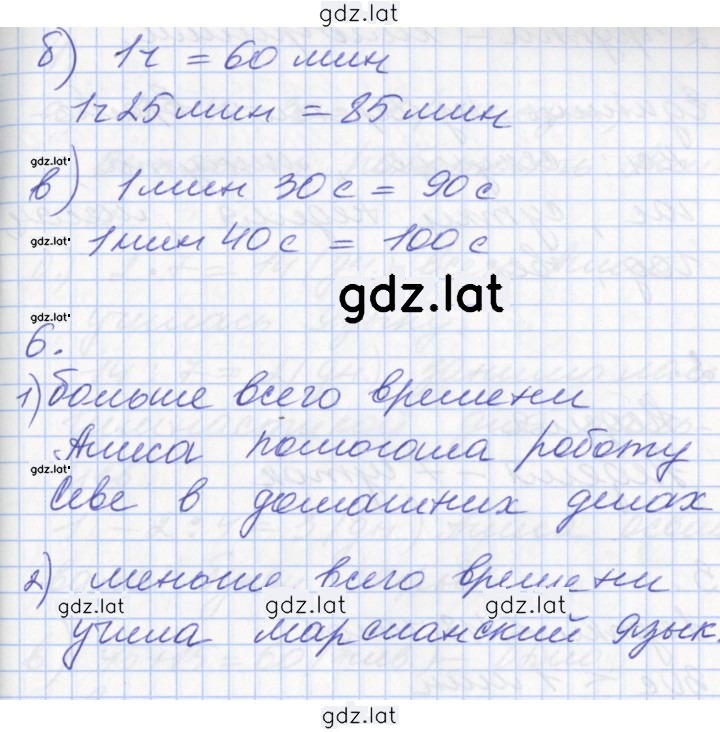 gdz.lat
б) 1ч = 60 мин
1ч 25 мин = 85 мин
gdz.lat
в) 1 мин 30 с = 90 с
gdz.lat
1 мин 40 с = 100 с
gdz.lat
gdz.lat
6.
1) больше всего времени
Алиса помогала роботу
gdz.lat
Севе в домашних делах
2) меньше всего времени
gdz.lat gdz.lat gdz.lat
учила марсианский язык.
gdz.lat